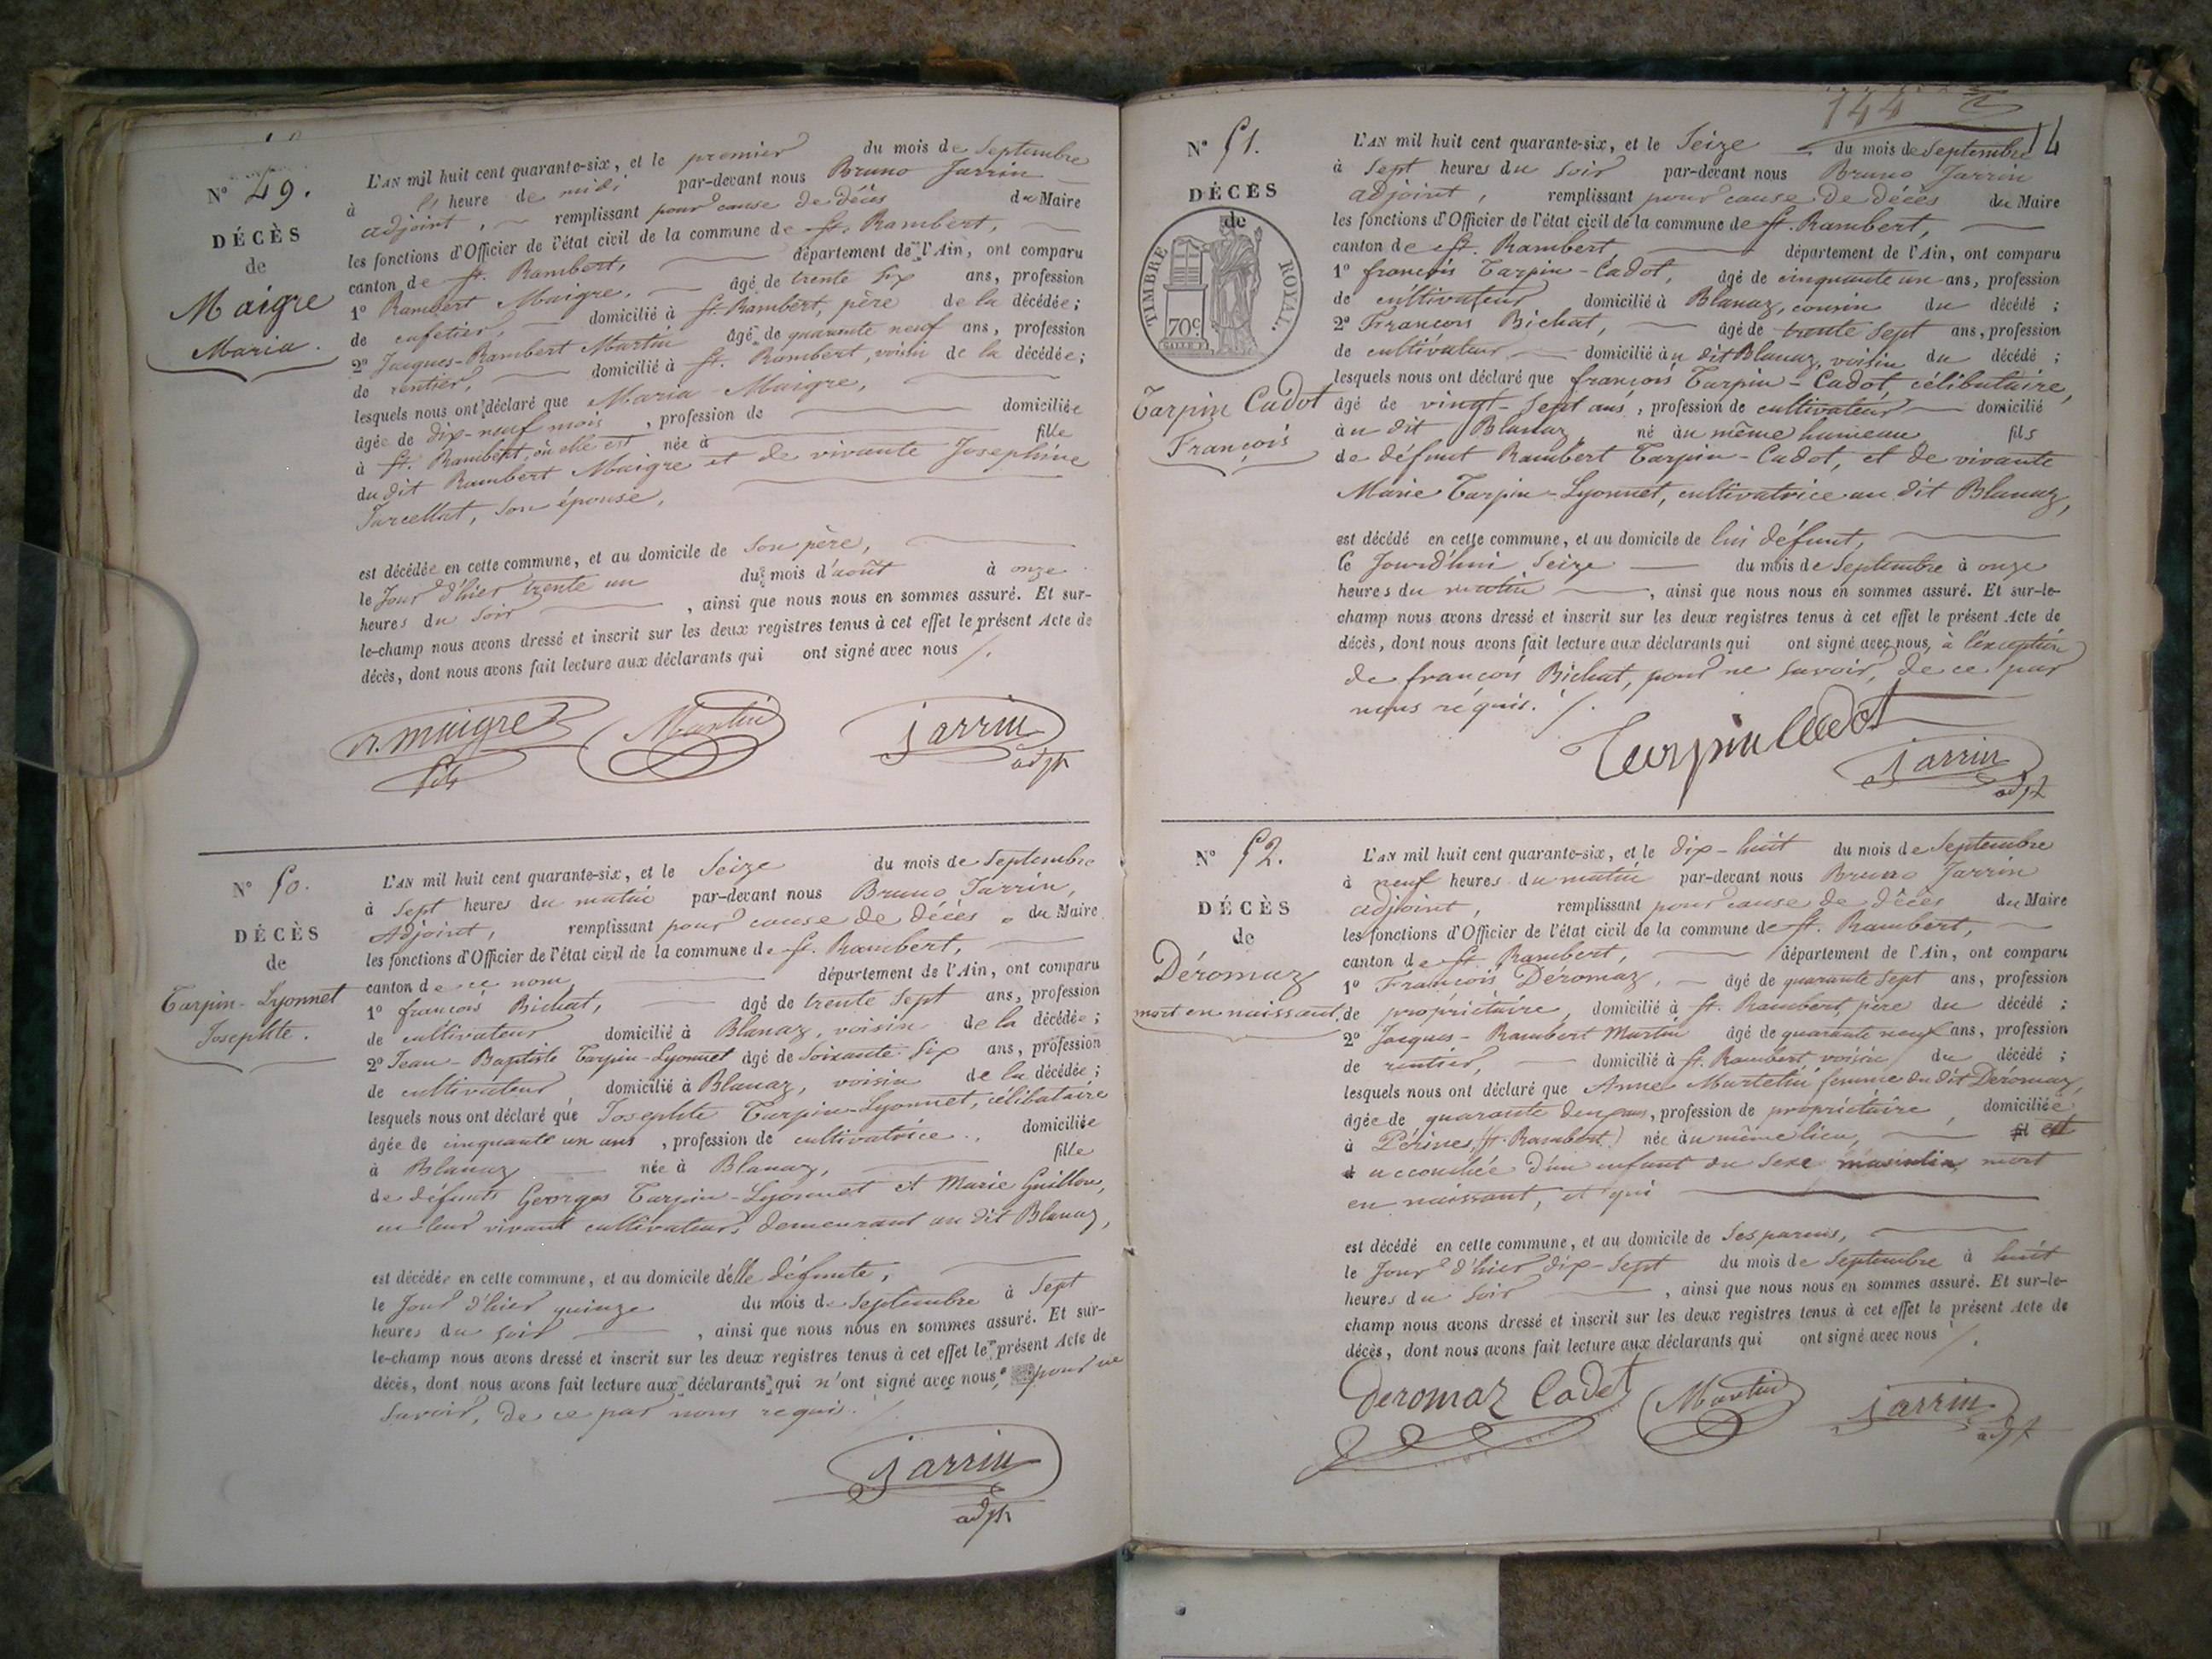 N° 49.
DÉCÈS
de
Maigre
Maria.
L'AN mil huit cent quarante-six, et le premier du mois de Septembre
à l' heure de midi par-devant nous Bruno Jarrin
adjoint, remplissant pour cause de décès du Maire
les fonctions d'Officier de l'état civil de la commune de St. Rambert,
canton de St. Rambert, département de l'Ain, ont comparu
1° Rambert Maigre, âgé de trente six ans, profession
de cafetier, domicilié à St. Rambert, père de la décédée;
2° Jacques-Rambert Martin âgé de quarante neuf ans, profession
de rentier, domicilié à St. Rambert, voisin de la décédée;
lesquels nous ont déclaré que Maria Maigre,
âgée de dix-neuf mois, profession de domiciliée
à St. Rambert, où elle est née à fille
du dit Rambert Maigre et de vivante Josephine
Jarcellat, son épouse,
est décédée en cette commune, et au domicile de son père,
le jour d'hier trente un du mois d'août à onze
heures du soir, ainsi que nous nous en sommes assuré. Et sur-
le-champ nous avons dressé et inscrit sur les deux registres tenus à cet effet le présent Acte de
décès, dont nous avons fait lecture aux déclarants qui ont signé avec nous /.
r. maigre fils Martin jarrin
adjt
N° 50.
DÉCÈS
de
Tarpin-Lyonnet
Josephte.
L'AN mil huit cent quarante-six, et le Seize du mois de Septembre
à Sept heures du matin par-devant nous Bruno Jarrin,
Adjoint, remplissant pour cause de décès du Maire
les fonctions d'Officier de l'état civil de la commune de St. Rambert,
canton de ce nom département de l'Ain, ont comparu
1° françois Bichat, âgé de trente Sept ans, profession
de cultivateur domicilié à Blanaz, voisin de la décédée;
2° Jean-Baptiste Tarpin-Lyonnet âgé de Soixante-Six ans, profession
de cultivateur domicilié à Blanaz, voisin de la décédée;
lesquels nous ont déclaré que Josephte Tarpin-Lyonnet, célibataire
âgée de cinquante un ans, profession de cultivatrice, domiciliée
à Blanaz née à Blanaz, fille
de défunts Georges Tarpin-Lyonnet et Marie Guillon,
en leur vivant cultivateurs, demeurant au dit Blanaz,
est décédée en cette commune, et au domicile d'elle défunte,
le jour d'hier quinze du mois de Septembre à Sept
heures du soir, ainsi que nous nous en sommes assuré. Et sur-
le-champ nous avons dressé et inscrit sur les deux registres tenus à cet effet le présent Acte de
décès, dont nous avons fait lecture aux déclarants qui n'ont signé avec nous, pour ne
savoir, de ce par nous requis. /.
jarrin
adjt
144
14
N° 51.
DÉCÈS
de
TIMBRE ROYAL.
70c.
Tarpin Cadot
François
L'AN mil huit cent quarante-six, et le Seize du mois de Septembre
à Sept heures du soir par-devant nous Bruno Jarrin
adjoint, remplissant pour cause de décès du Maire
les fonctions d'Officier de l'état civil de la commune de St. Rambert,
canton de St. Rambert département de l'Ain, ont comparu
1° françois Tarpin-Cadot, âgé de cinquante un ans, profession
de cultivateur domicilié à Blanaz, cousin du décédé;
2° François Bichat, âgé de trente Sept ans, profession
de cultivateur domicilié au dit Blanaz, voisin du décédé;
lesquels nous ont déclaré que françois Tarpin-Cadot, célibataire,
âgé de vingt-Sept ans, profession de cultivateur domicilié
au dit Blanaz né au même hameau fils
de défunt Rambert Tarpin-Cadot, et de vivante
Marie Tarpin-Lyonnet, cultivatrice au dit Blanaz,
est décédé en cette commune, et au domicile de lui défunt,
Ce Jourd'hui Seize du mois de Septembre à onze
heures du matin, ainsi que nous nous en sommes assuré. Et sur-le-
champ nous avons dressé et inscrit sur les deux registres tenus à cet effet le présent Acte de
décès, dont nous avons fait lecture aux déclarants qui ont signé avec nous, à l'exception
de françois Bichat, pour ne savoir, de ce par
nous requis. /.
Tarpin Cadot
jarrin
adjt
N° 52.
DÉCÈS
de
Déromaz
mort en naissant.
L'AN mil huit cent quarante-six, et le dix-huit du mois de Septembre
à neuf heures du matin par-devant nous Bruno Jarrin
adjoint, remplissant pour cause de décès du Maire
les fonctions d'Officier de l'état civil de la commune de St. Rambert,
canton de St. Rambert, département de l'Ain, ont comparu
1° François Déromaz, âgé de quarante Sept ans, profession
de propriétaire, domicilié à St. Rambert, père du décédé;
2° Jacques-Rambert Martin âgé de quarante neuf ans, profession
de rentier, domicilié à St. Rambert voisin du décédé;
lesquels nous ont déclaré que Anne Martelin femme du dit Déromaz,
âgée de quarante deux ans, profession de propriétaire, domiciliée
à Pérines, (St. Rambert) née au même lieu, est
accouchée d'un enfant du Sexe masculin, mort
en naissant, et qui
est décédé en cette commune, et au domicile de Ses parens,
le jour d'hier dix-Sept du mois de Septembre à huit
heures du soir, ainsi que nous nous en sommes assuré. Et sur-le-
champ nous avons dressé et inscrit sur les deux registres tenus à cet effet le présent Acte de
décès, dont nous avons fait lecture aux déclarants qui ont signé avec nous /.
Deromaz Cadet Martin jarrin
adjt